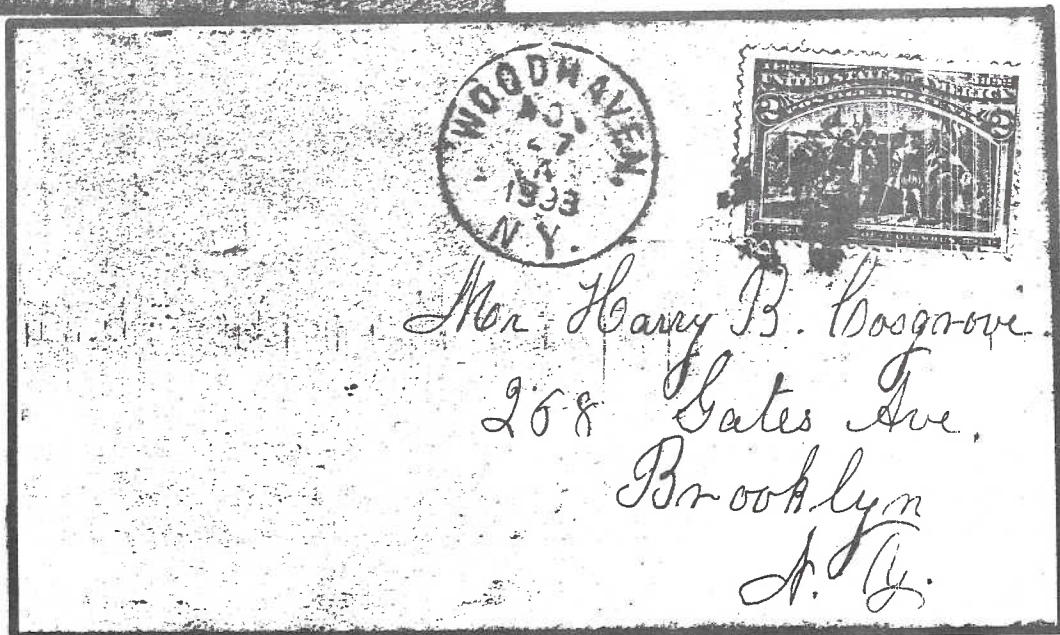 WOODHAVEN,
27
N.Y.
2 2
UNITED STATES OF AMERICA
Mr Harry B. Cosgrove.
268 Gates Ave.
Brooklyn
N. Y.